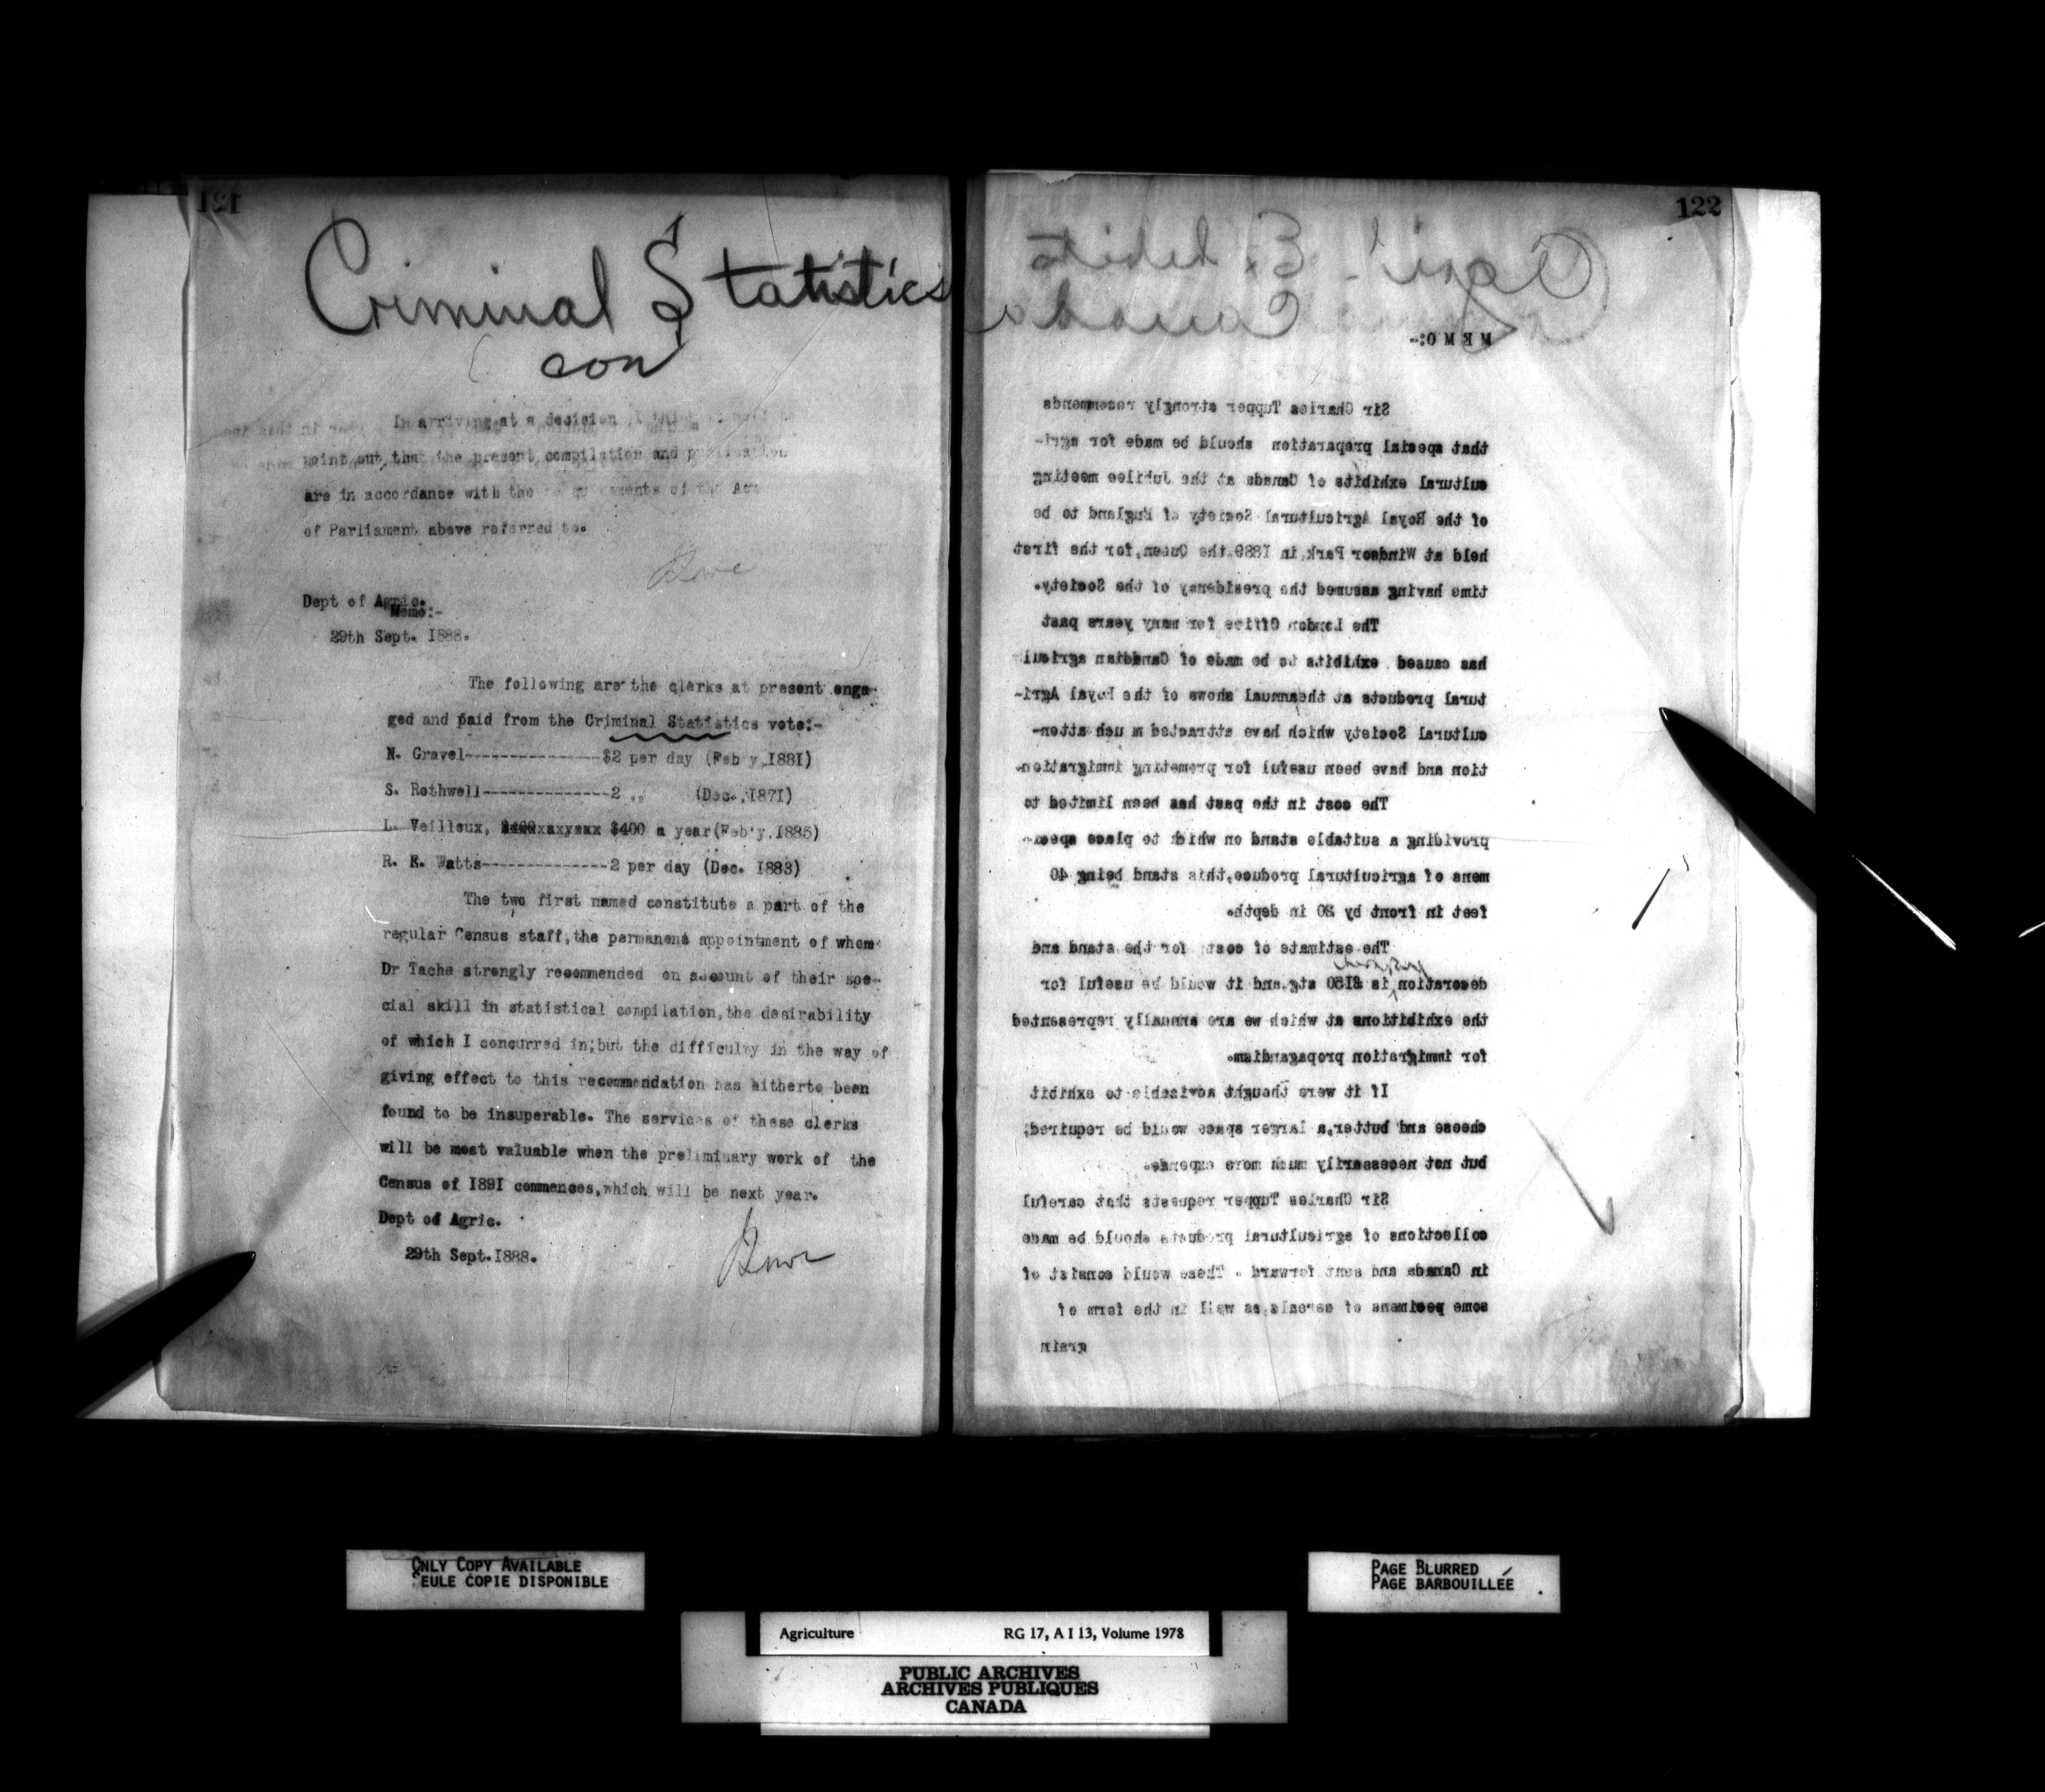 121
Criminal Statistics
con
In arriving at a decision
point out, that the present compilation and publication
are in accordance with the requirements of the Act
of Parliament above referred to.
Lowe
Dept of Agric.
Memo:-
29th Sept. 1888.
The following are the clerks at present enga-
ged and paid from the Criminal Statistics vote:-
N. Gravel---------------$2 per day (Feb'y, 1881)
S. Rothwell--------------2 ,, (Dec., 1871)
L. Veilleux, $400 a year (Feb'y, 1885)
R. E. Watts--------------2 per day (Dec. 1883)
The two first named constitute a part of the
regular Census staff, the permanent appointment of whom
Dr Tache strongly recommended on account of their spe-
cial skill in statistical compilation, the desirability
of which I concurred in; but the difficulty in the way of
giving effect to this recommendation has hitherto been
found to be insuperable. The services of these clerks
will be most valuable when the preliminary work of the
Census of 1891 commences, which will be next year.
Dept of Agric.
29th Sept. 1888.
Lowe
122
Agri'l Exhibits
Canada
M E M O:-
Sir Charles Tupper strongly recommends
that special preparation should be made for agri-
cultural exhibits of Canada at the Jubilee meeting
of the Royal Agricultural Society of England to be
held at Windsor Park in 1889, the Queen, for the first
time having assumed the presidency of the Society.
The London Office for many years past
has caused exhibits to be made of Canadian agricul
tural products at the annual shows of the Royal Agri-
cultural Society which have attracted m uch atten-
tion and have been useful for promoting immigration.
The cost in the past has been limited to
providing a suitable stand on which to place speci-
mens of agricultural produce, this stand being 40
feet in front by 20 in depth.
The estimate of cost for the stand and
decoration is £150 stg. and it would be useful for
the exhibitions at which we are annually represented
for immigration propagandism.
If it were thought advisable to exhibit
cheese and butter, a larger space would be required,
but not necessarily much more expense.
Sir Charles Tupper requests that careful
collections of agricultural products should be made
in Canada and sent forward. These would consist of
some pecimens of cereals, as well in the form of
grain
ONLY COPY AVAILABLE
SEULE COPIE DISPONIBLE
PAGE BLURRED
PAGE BARBOUILLÉE
Agriculture RG 17, A I 13, Volume 1978
PUBLIC ARCHIVES
ARCHIVES PUBLIQUES
CANADA